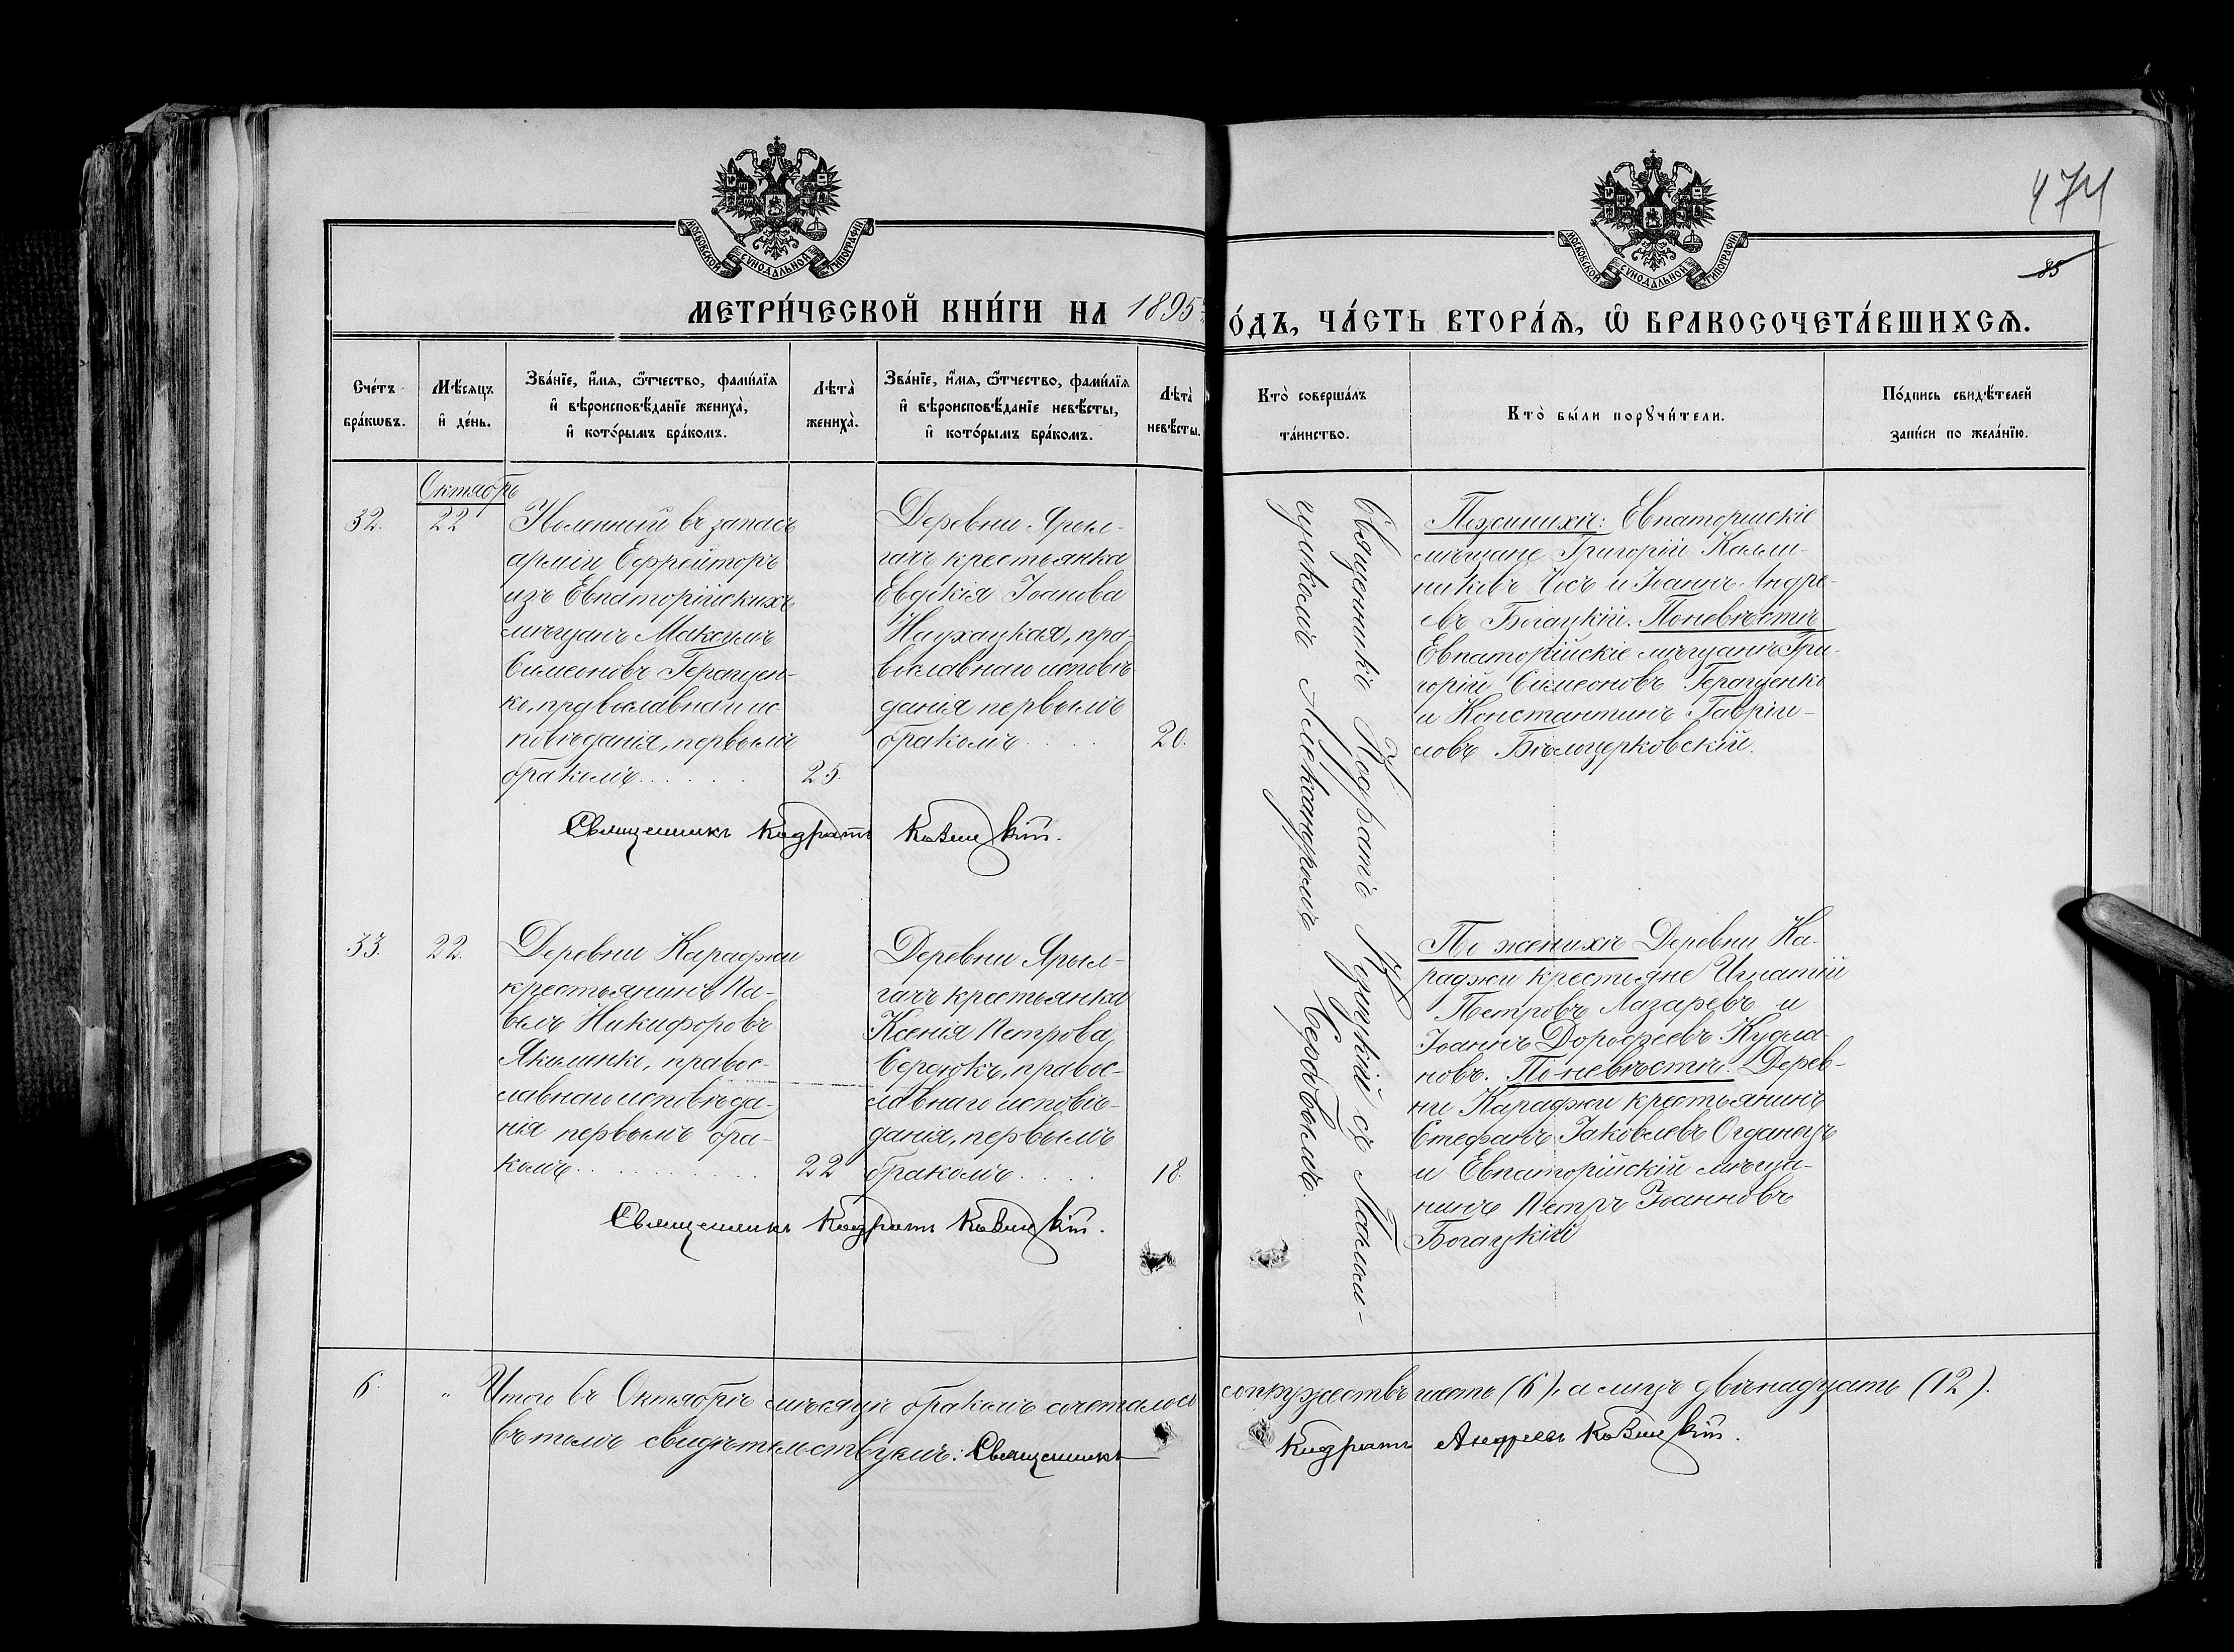 474
85
МОСКОВСКОЙ СѴНОДАЛЬНОЙ ТИПОГРАФІИ
МОСКОВСКОЙ СѴНОДАЛЬНОЙ ТИПОГРАФІИ
МЕТРИ́ЧЕСКОЙ КНИ́ГИ НА 1895
О́ДЪ, ЧА́СТЬ ВТОРА́Ѧ, Ѽ БРАКОСОЧЕТА́ВШИХСѦ.
Сче́тъ
бра́кѡвъ.
Мѣ́сѧцъ
и҆ де́нь.
Зва́нїе, и҆́мѧ, ѻ҆́тчество, фами́лїѧ
и҆ вѣроисповѣ́данїе жениха̀,
и҆ кото́рымъ бра́комъ.
Лѣта̀
жениха̀.
Зва́нїе, и҆́мѧ, ѻ҆́тчество, фами́лїѧ
и҆ вѣроисповѣ́данїе невѣ́сты,
и҆ кото́рымъ бра́комъ.
Лѣта̀
невѣ́сты.
Кто̀ соверша́лъ
та́инство.
Кто̀ бы́ли порꙋчи́тели.
По́дпись свидѣ́телей
за́писи по жела́нїю.
Октябрь
32.
22
Уволенный въ запасъ
арміи Ефрейторъ
изъ Евпаторійскихъ
мѣщанъ Максимъ
Симеоновъ Геращен-
ко, православнаго ис
повѣданія, первымъ
бракомъ.
25.
Деревни Ярыл-
гачъ крестьянка
Евдокія Іоанова
Наухацкая, пра-
вославнаго исповѣ-
данія первымъ
бракомъ
20.
Священникъ Кодратъ
съ Псалом-
щикомъ Александромъ Сербовымъ.
По женихѣ: Евпаторійскіе
мѣщане Григорій Калли-
никовъ Усъ и Іоаннъ Андре-
евъ Богацкій. По невѣстѣ
Евпаторійскіе мѣщане Гри-
горій Симеоновъ Геращенко
и Константинъ Гавріи-
ловъ Бѣлоцерковскій.
Священникъ Кодратъ
33.
22.
Деревни Караджи
крестьянинъ Па-
велъ Никифоровъ
Якименко, правос-
лавнаго исповѣда-
нія первымъ бра-
комъ
22
Деревни Ярыл-
гачъ крестьянка
Ксенія Петрова
Сердюкъ, правос-
лавнаго исповѣ-
данія, первымъ
бракомъ
18.
По женихѣ Деревни Ка-
раджи крестьяне Игнатій
Петровъ Лазаревъ и
Іоаннъ Дорофеевъ Кудла-
новъ. По невѣстѣ: Дерев-
ни Караджи крестьянинъ
Стефанъ Іаковлевъ
и Евпаторійскій мѣща-
нинъ Петръ Іоанновъ
Богацкій
Священникъ Кодратъ
6. " Итого въ Октябрѣ мѣсяцѣ бракомъ сочеталось супружествъ шесть (6), а лицъ двѣнадцать (12).
Въ томъ свидѣтельствуемъ: Священникъ Кодратъ Андреевъ